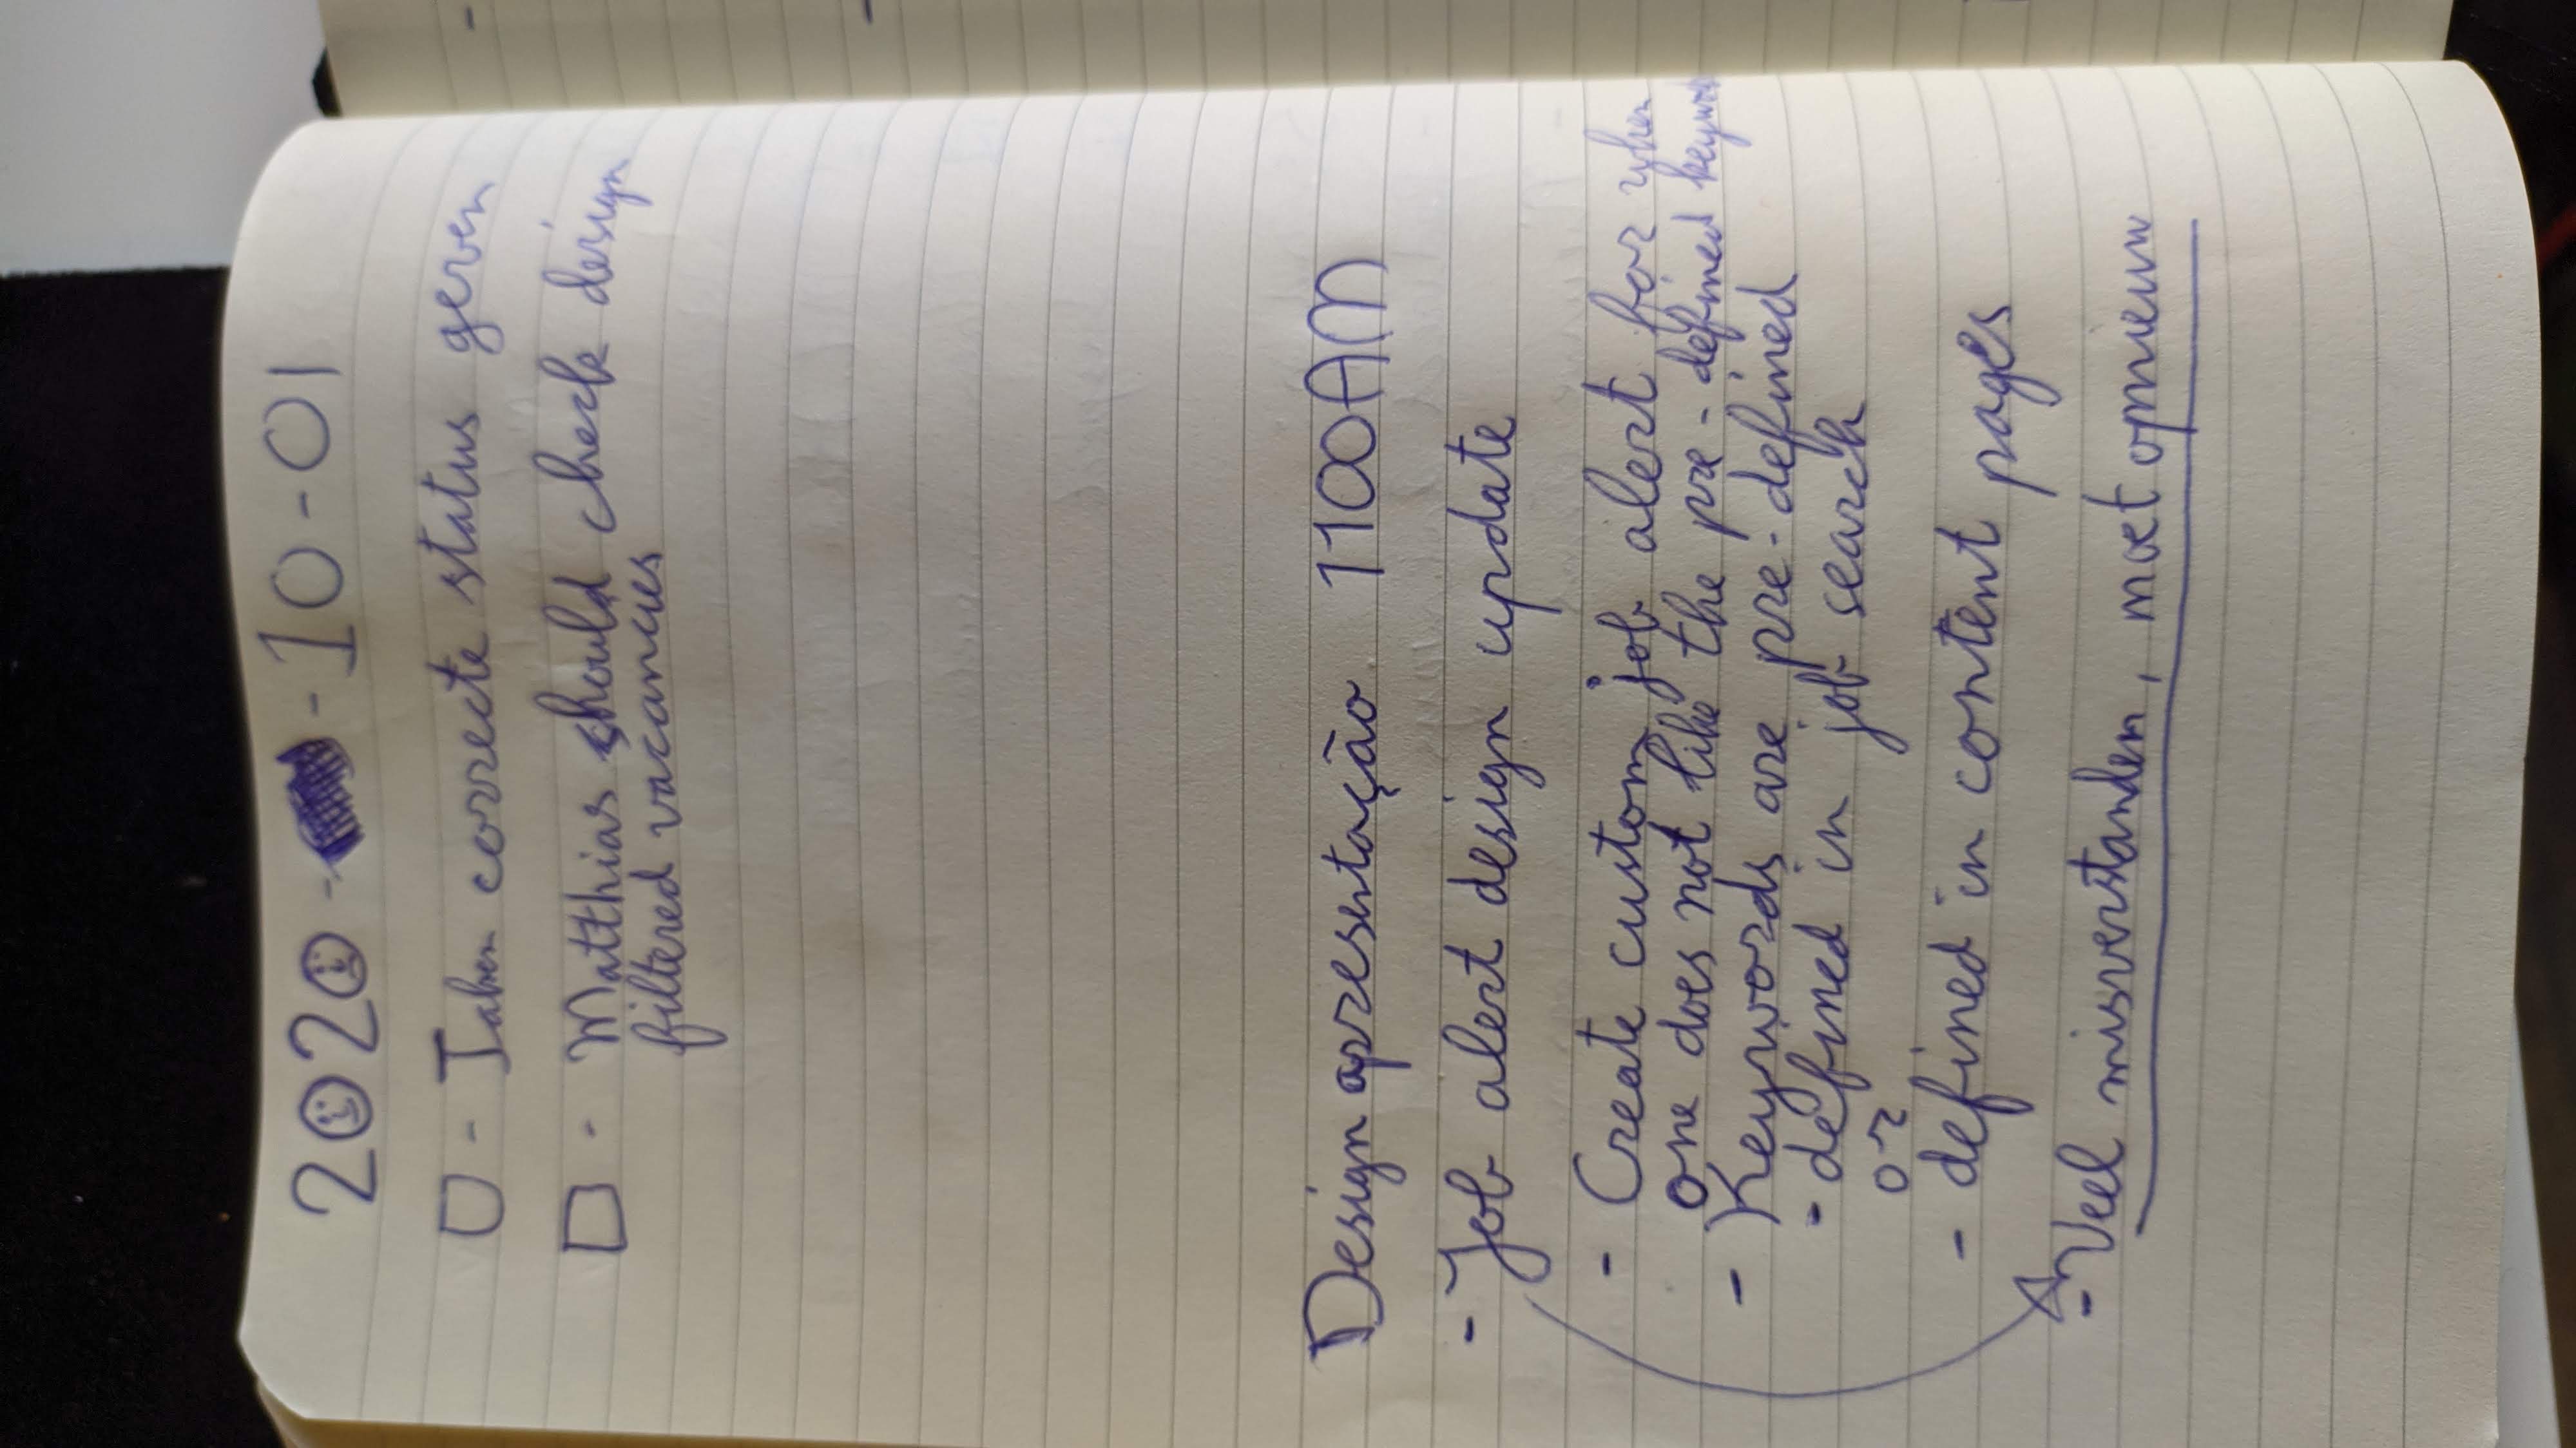 2020 - - 10 - 01
- Taken correcte status geven
- Matthias should check design
filtered vacancies
Design apresentação 1100AM
- Job alert design update
- Create custom job alert for when
one does not like the pre-defined keywords
- Keywords are pre-defined
- defined in job search
or
- defined in content pages
- Veel misverstanden, moet opnieuw